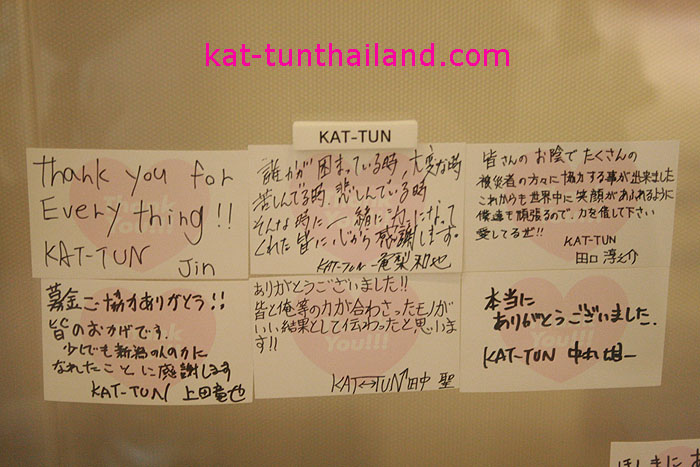 kat-tunthailand.com
KAT-TUN
Thank you for
Every thing!!
KAT-TUN Jin
誰かが困まっている時、大変な時
苦しんでる時、悲しんでいる時
そんな時に一緒に力になって
くれた皆に、心から感謝します。
KAT-TUN 亀梨和也
皆さんのお陰でたくさんの
被災者の方々に協力する事が出来ました
これからも世界中に笑顔があふれるように
僕達も頑張るので、力を貸して下さい
愛してるぜ!!
KAT-TUN
田口淳之介
募金ご協力ありがとう!!
皆のおかげです。
少しでも新潟の人の力に
なれたことに感謝します
KAT-TUN 上田竜也
ありがとうございました!!
皆と俺等の力が合わさったモノが
いい結果として伝わったと思いま
す!!
KAT↔TUN 田中 聖
本当に
ありがとうございました.
KAT-TUN 中丸雄一
Thank
You!!!
You!!!
ほしきに